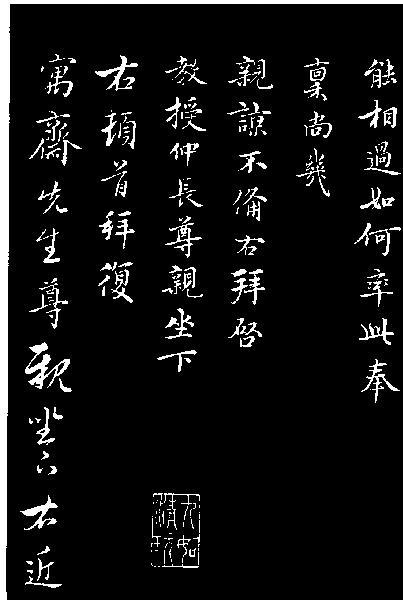 能相過如何率此奉
稟尚幾
親諒不備右拜啓
教授仲長尊親坐下
右頓首拜復
寓齋先生尊親坐下右近